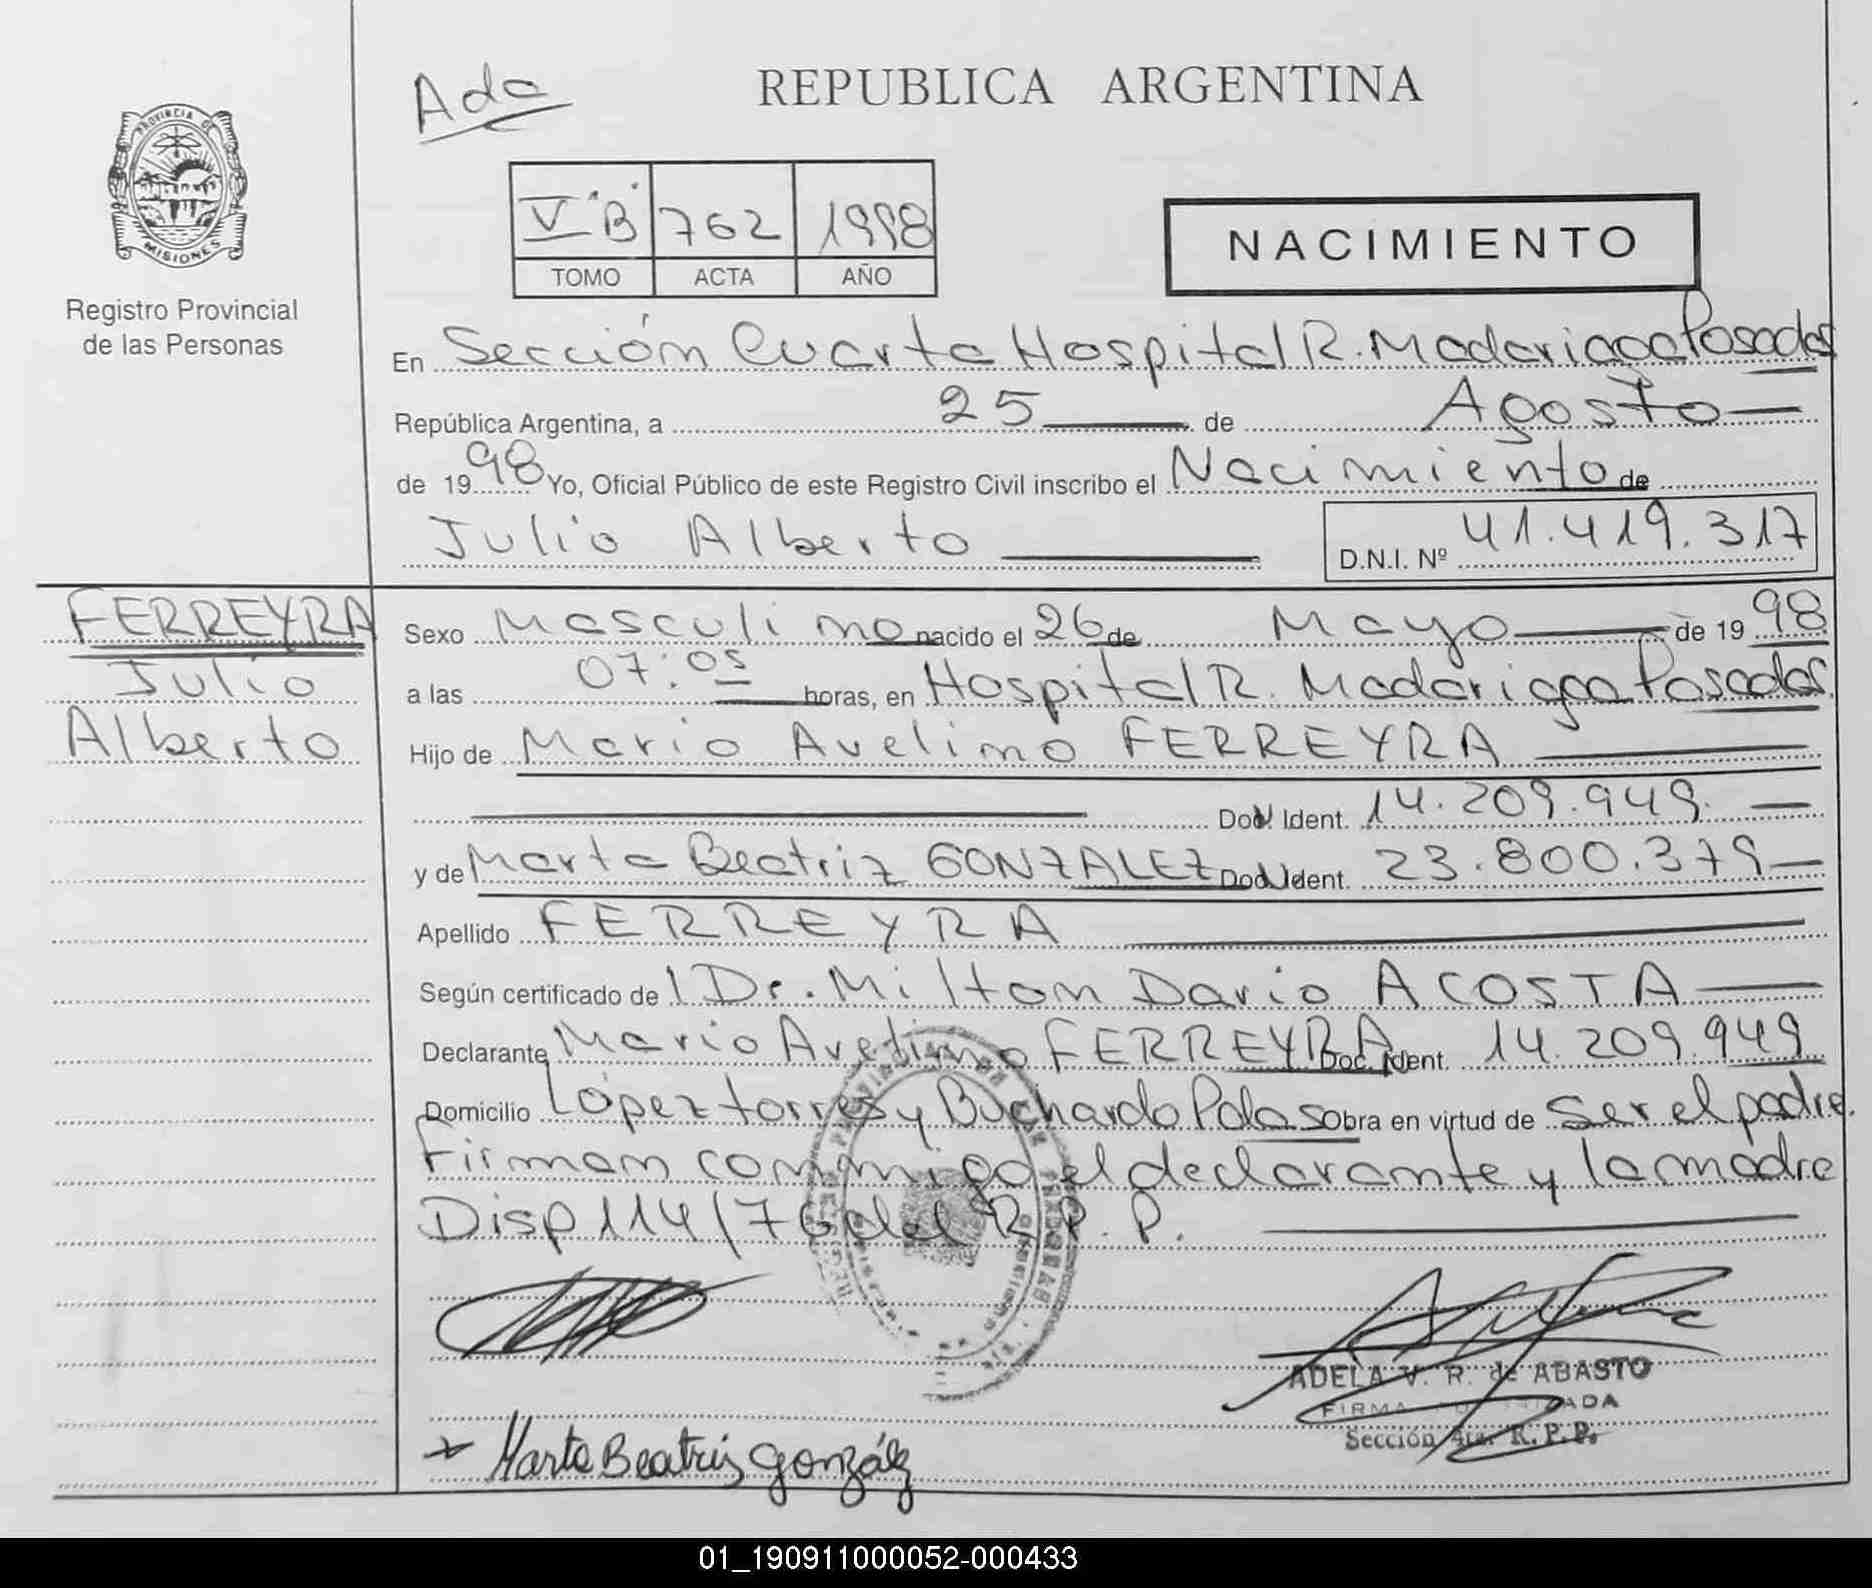 Ada
REPUBLICA ARGENTINA
PROVINCIA DE
MISIONES
Registro Provincial
de las Personas
V "B" 762 1998
TOMO ACTA AÑO
NACIMIENTO
En Sección Cuarta Hospital R. Madariaga Posadas
República Argentina, a 25 de Agosto
de 1998 Yo, Oficial Público de este Registro Civil inscribo el Nacimiento de
Julio Alberto D.N.I. Nº 41.419.317
FERREYRA
Julio
Alberto
Sexo Masculino nacido el 26 de Mayo de 1998
a las 07:05 horas, en Hospital R. Madariaga Posadas
Hijo de Mario Avelino FERREYRA
Doc. Ident. 14.209.949
y de Marta Beatriz GONZALEZ Doc. Ident. 23.800.379
Apellido FERREYRA
Según certificado del Dr. Milton Dario ACOSTA
Declarante Mario Avelino FERREYRA Doc. Ident. 14.209.949
Domicilio López torres y Buchardo Pdas Obra en virtud de Ser el padre.
Firman conmigo el declarante y la madre
Disp 114/76 del R.P.P.
ADELA V. R. de ABASTO
FIRMA
Sección 4ta. R.P.P.
Marta Beatriz González
01_190911000052-000433